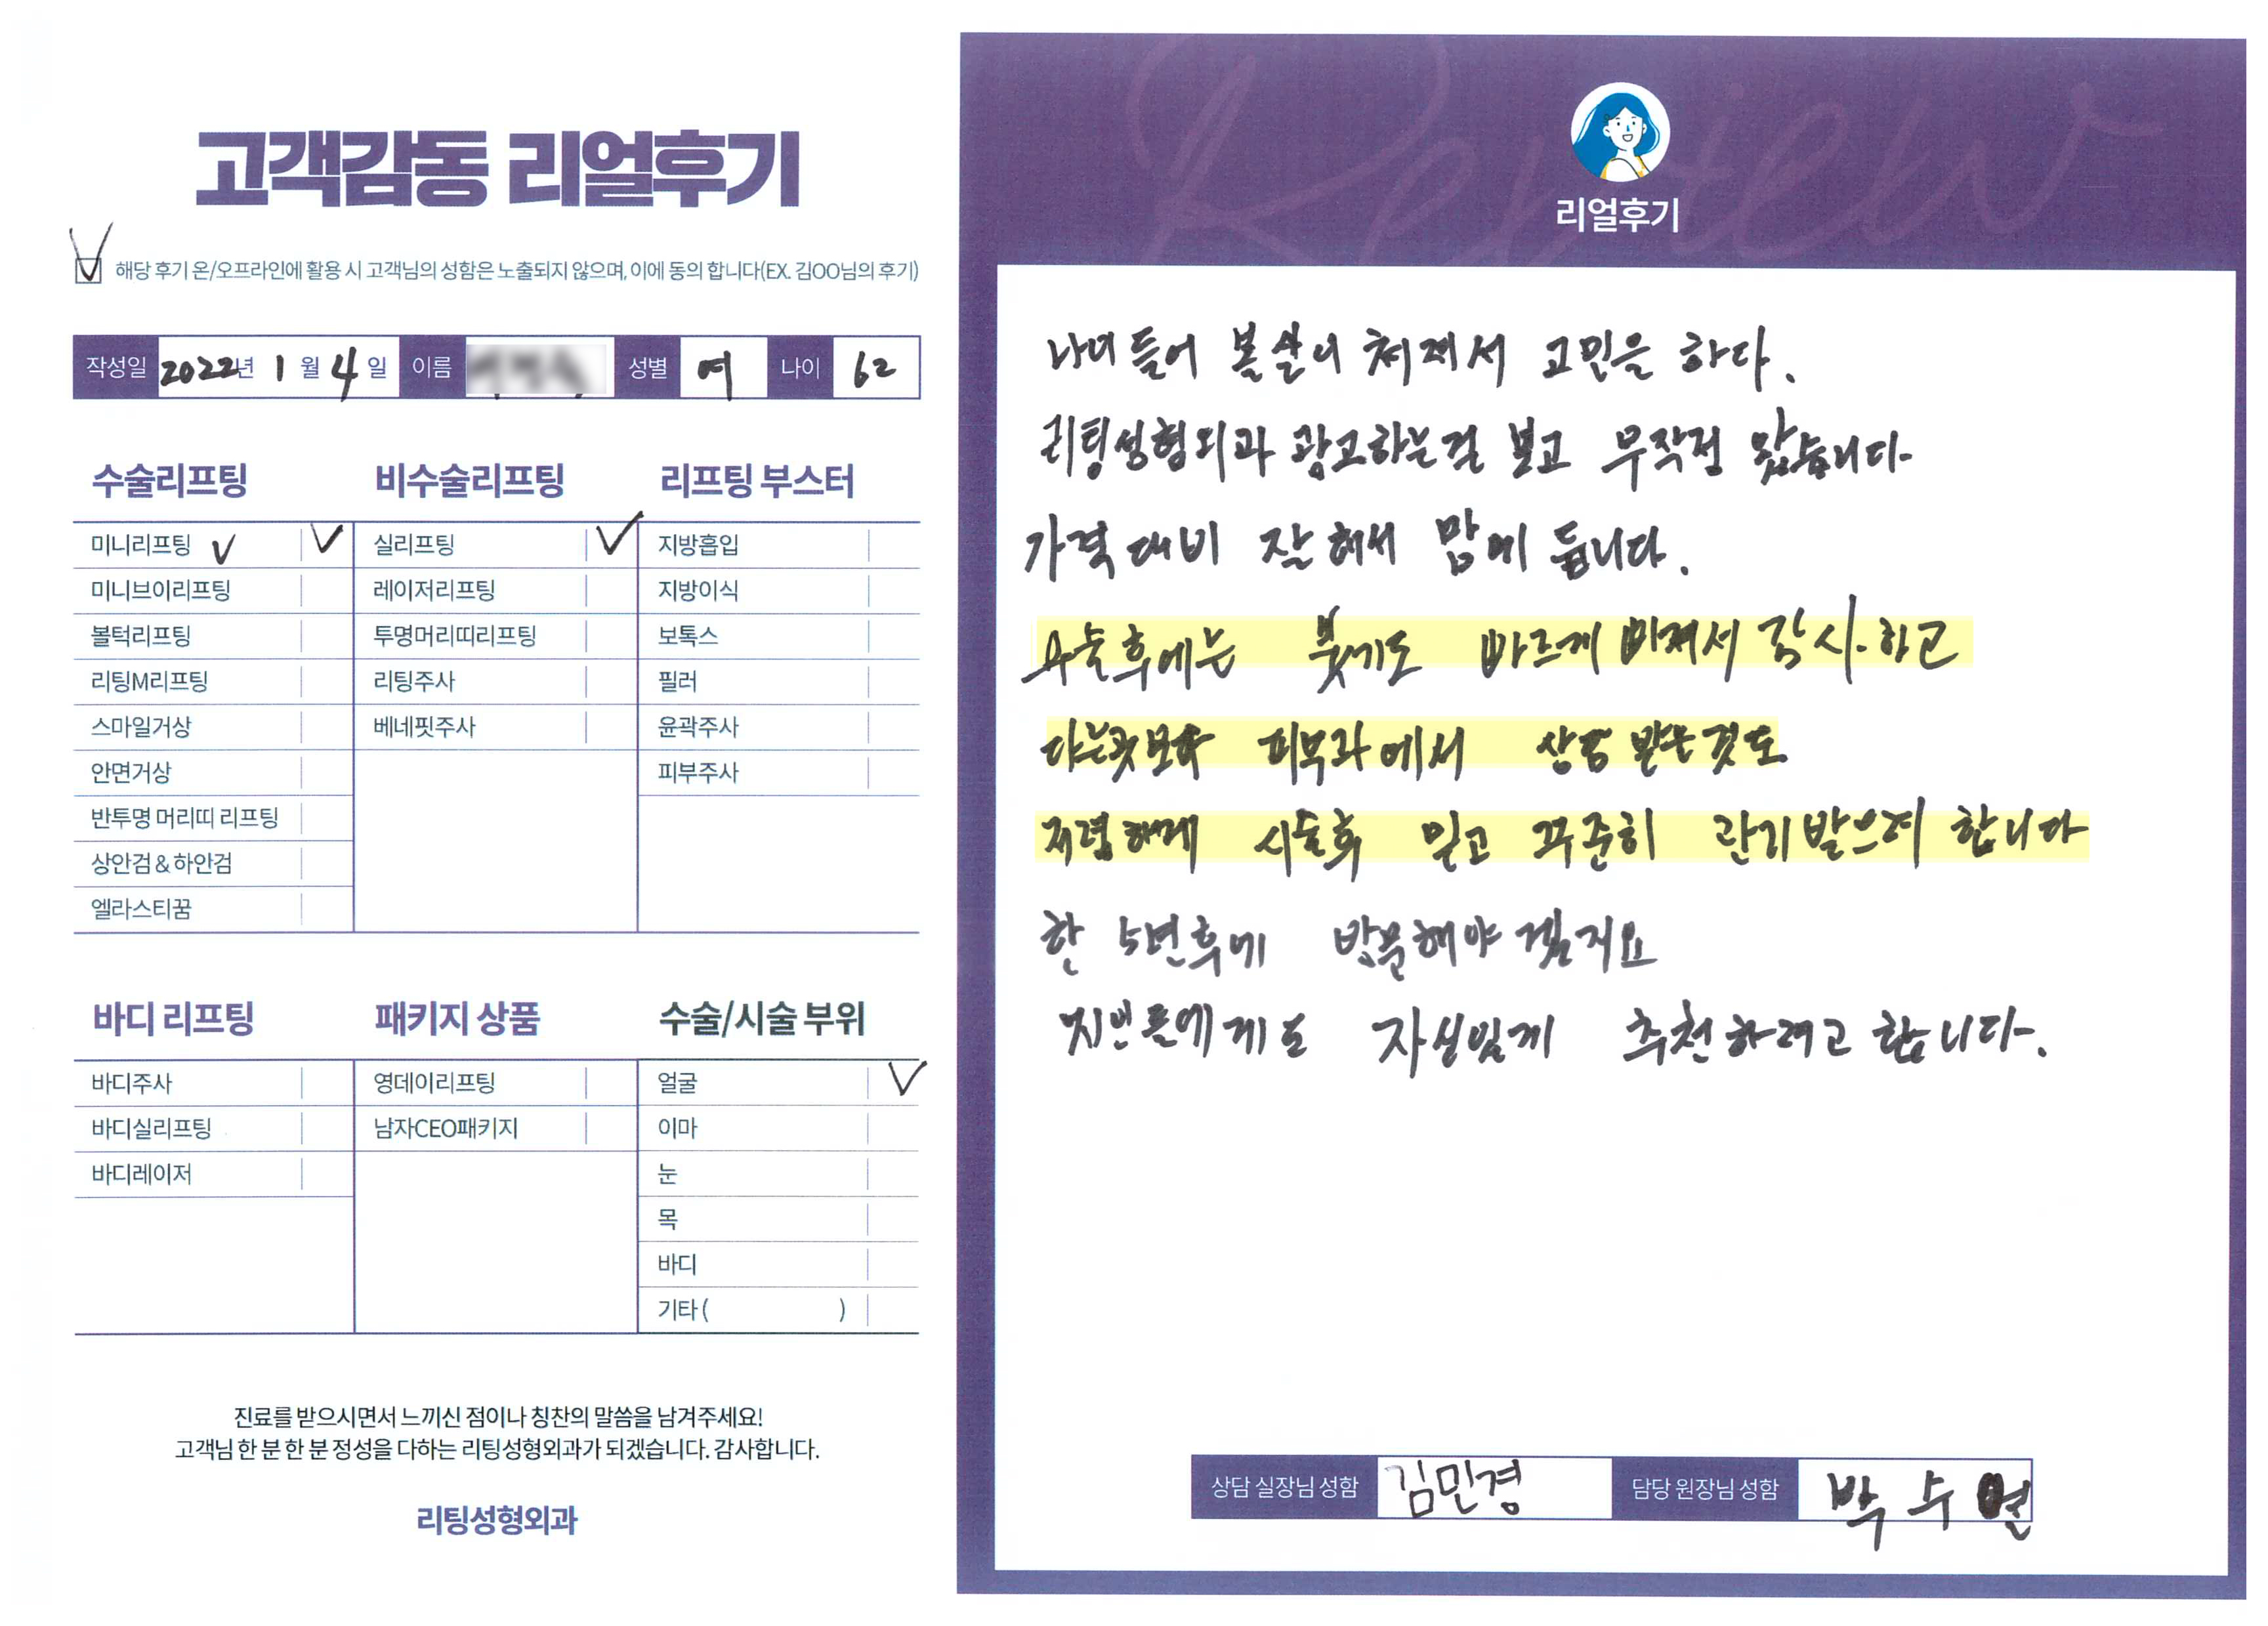 고객감동 리얼후기
해당 후기 온/오프라인에 활용 시 고객님의 성함은 노출되지 않으며, 이에 동의 합니다(EX. 김OO님의 후기)
작성일 2022년 1월 4일 이름 성별 여 나이 62
수술리프팅
미니리프팅
미니브이리프팅
볼턱리프팅
리팅M리프팅
스마일거상
안면거상
반투명 머리띠 리프팅
상안검 & 하안검
엘라스티꿈
비수술리프팅
실리프팅
레이저리프팅
투명머리띠리프팅
리팅주사
베네핏주사
리프팅 부스터
지방흡입
지방이식
보톡스
필러
윤곽주사
피부주사
바디 리프팅
바디주사
바디실리프팅
바디레이저
패키지 상품
영데이리프팅
남자CEO패키지
수술/시술 부위
얼굴
이마
눈
목
바디
기타 ( )
진료를 받으시면서 느끼신 점이나 칭찬의 말씀을 남겨주세요!
고객님 한 분 한 분 정성을 다하는 리팅성형외과가 되겠습니다. 감사합니다.
리팅성형외과
Review
리얼후기
나이 들어 볼살이 처져서 고민을 하다.
리팅성형외과 광고하는걸 보고 무작정 왔습니다.
가격대비 잘해서 맘에 듭니다.
수술후에는 붓기도 빠르게 빠져서 감사하고
다른곳보다 피부과에서 상담 받은것도
저렴하게 시술후 믿고 꾸준히 관리받으려 합니다
한 5년후에 방문해야 겠지요
지인들에게도 자신있게 추천하려고 합니다.
상담 실장님 성함 김민경 담당 원장님 성함 박수열